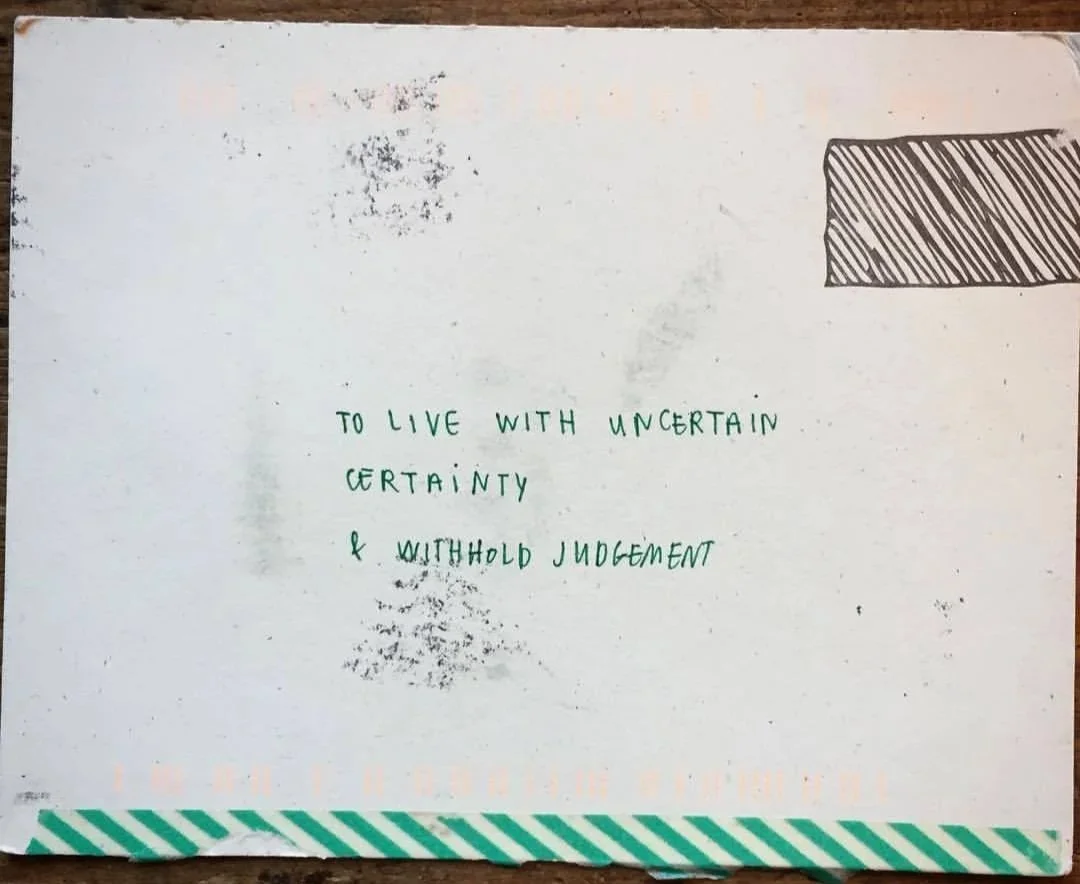 TO LIVE WITH UNCERTAIN
CERTAINTY
& WITHHOLD JUDGEMENT